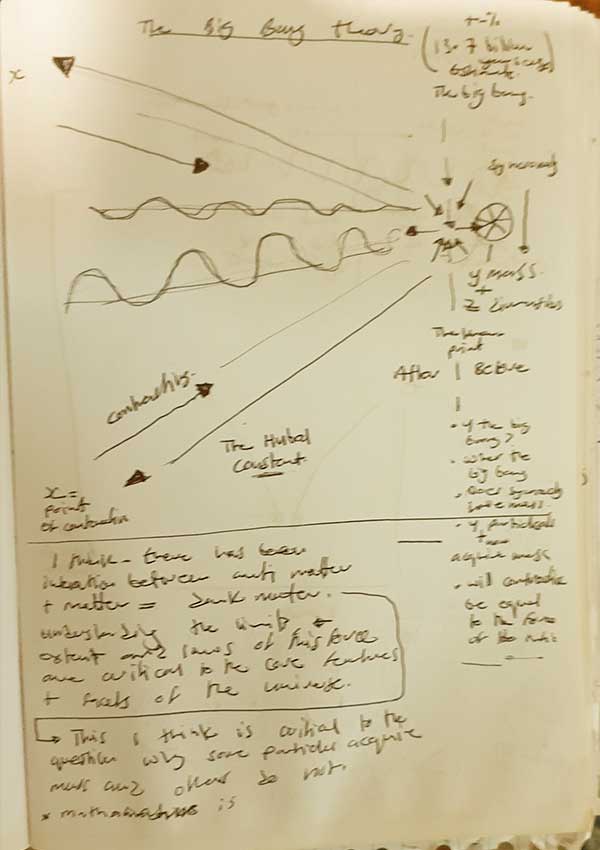 The Big Bang theory.
+-%
(13.7 billion
years
The big bang.
x
Symmetry
y mass.
+
z
The known
point
After | Before
contracting.
The Hubal
Constant.
x =
point
of contraction
• y the big
bang?
• what the
big bang
• Does symmetry
have mass.
• y particals
+
acquire mass
• will
be equal
to the force
of the
I think - there has been
between anti matter
+ matter = dark matter.
understanding the limits +
extent and laws of this force
are critical to the core features
+ facets of the universe.
→ This I think is critical to the
question why some particles acquire
mass and others do not.
* is